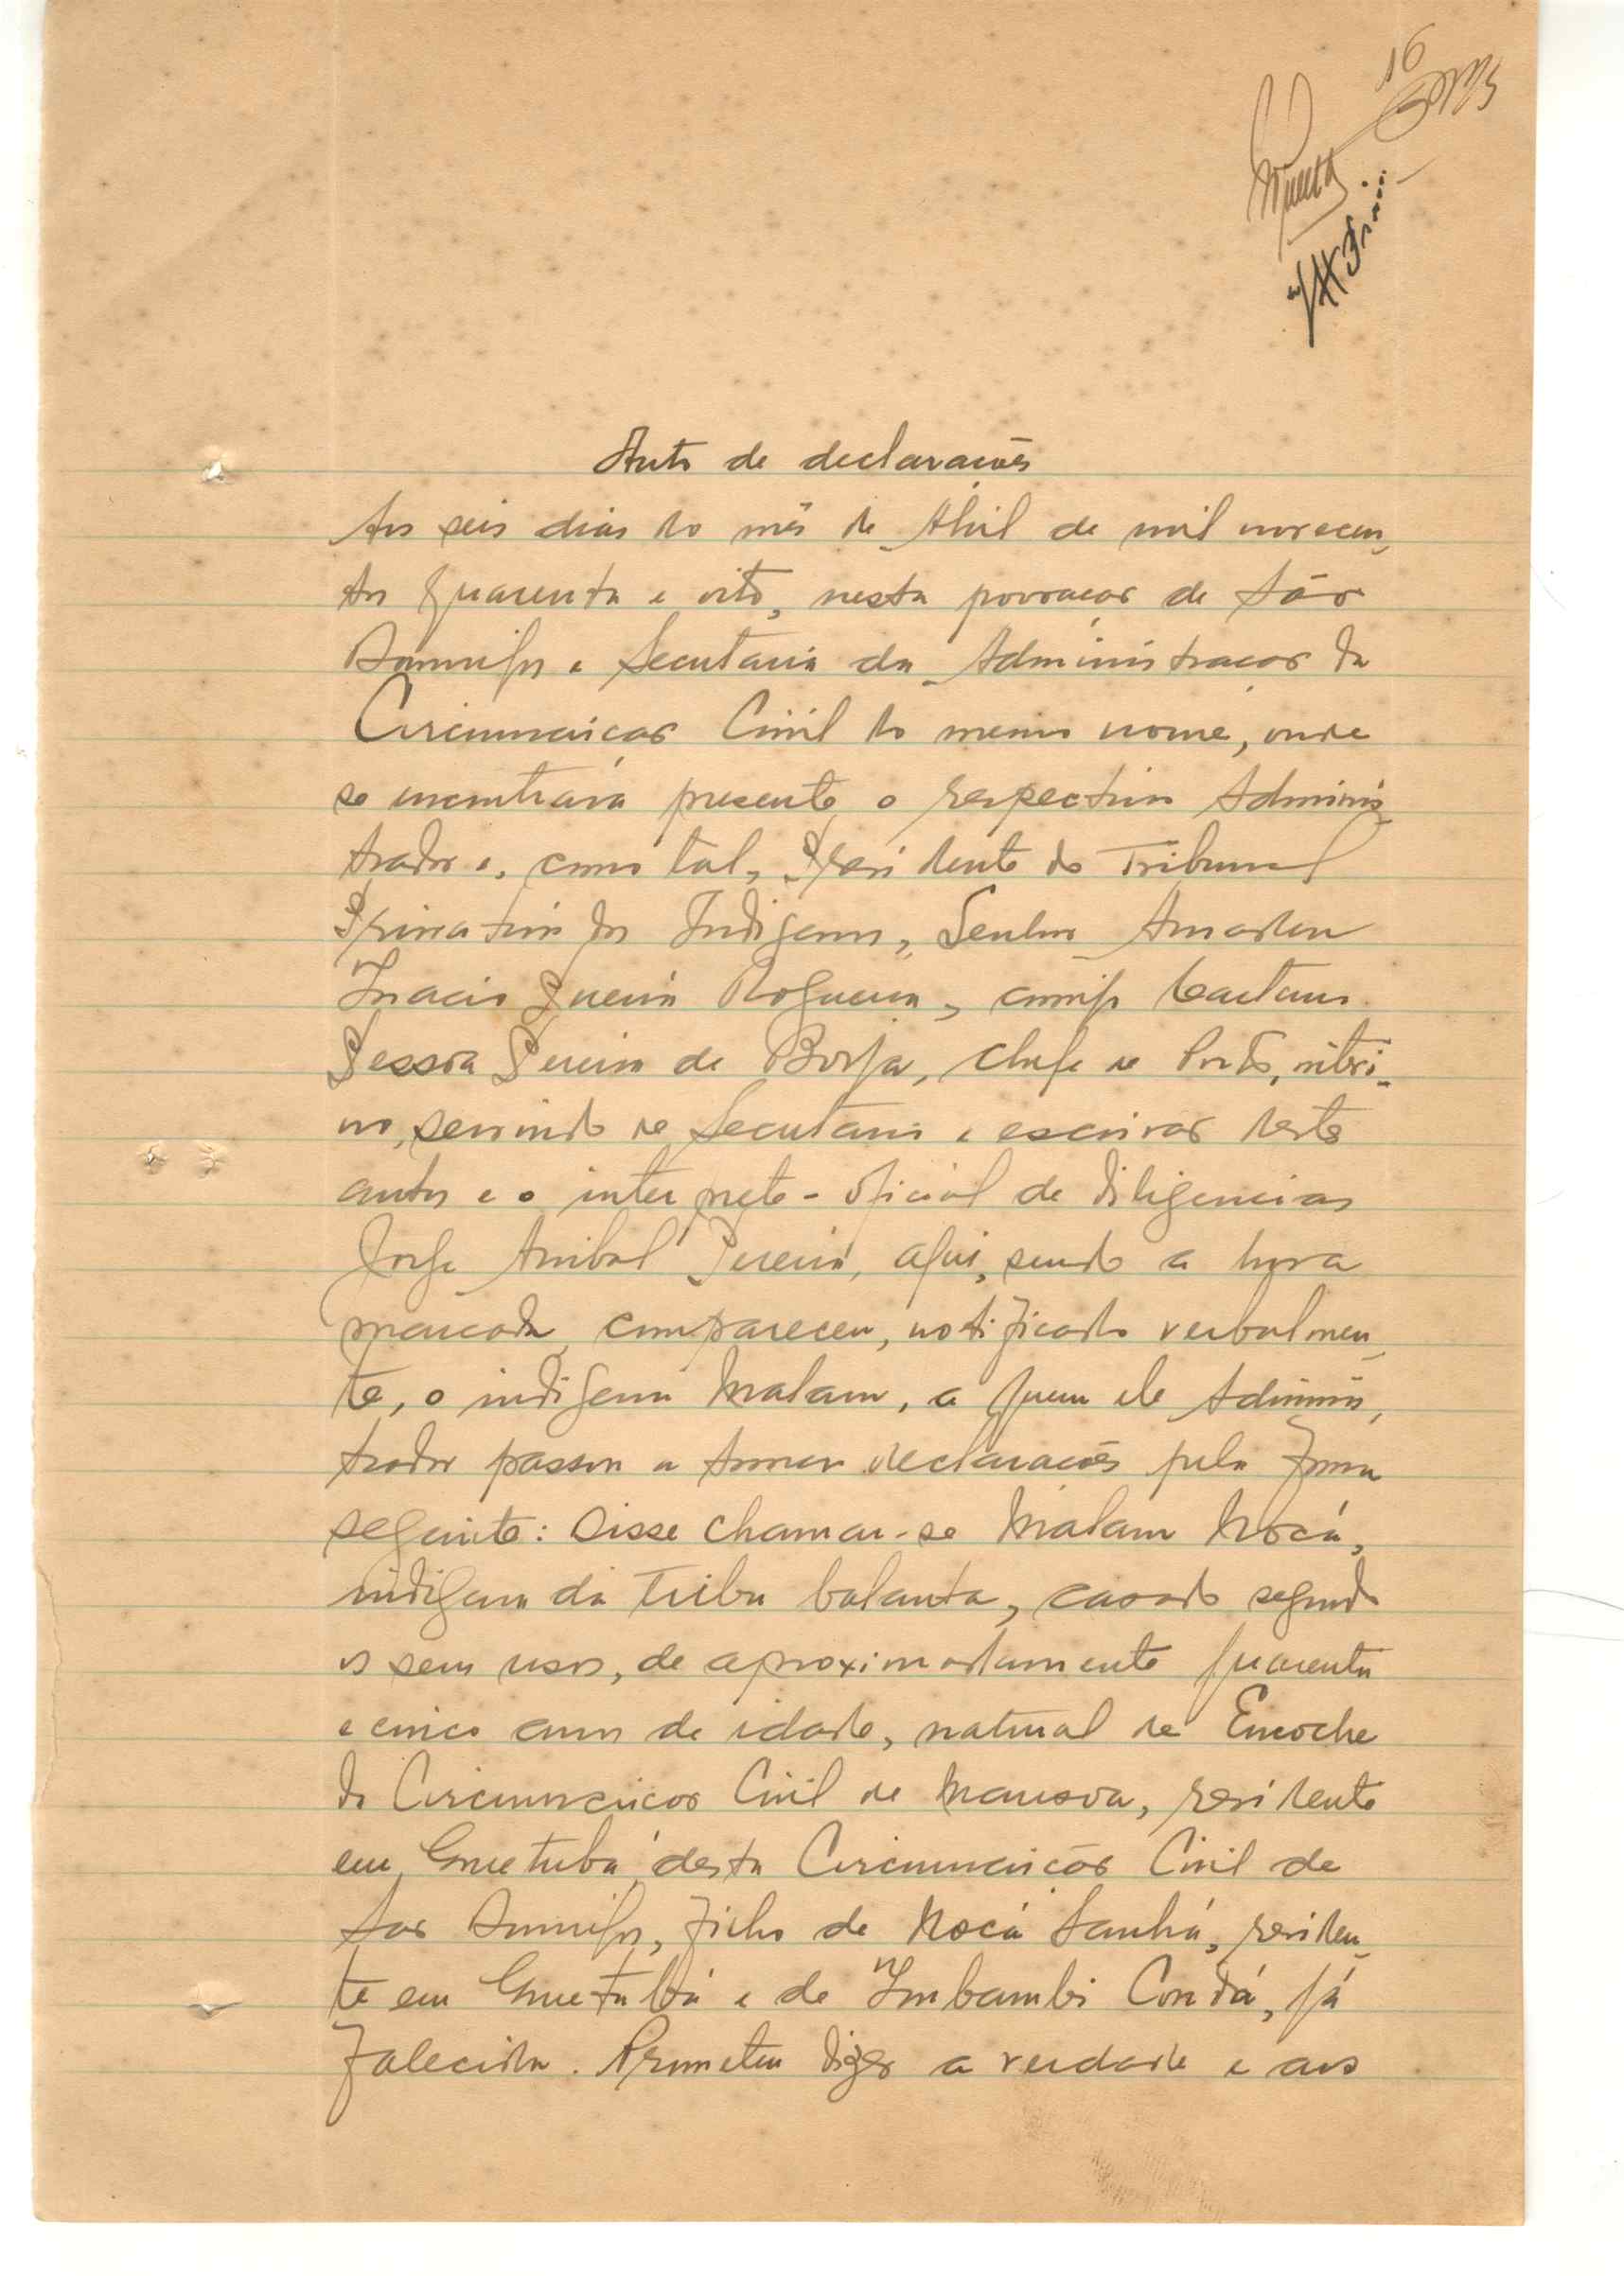 16
Auto de declarações
Aos seis dias do mês de Abril de mil novecen-
tos quarenta e oito, nesta povoação de São
Domingos e Secretaria da Administração da
Circunscrição Civil do mesmo nome, onde
se encontrava presente o respectivo Adminis-
trador e, como tal, Presidente do Tribunal
Privativo dos Indigenas, Senhor Amadeu
Inacio Pereira Nogueira, comigo Caetano
Pessoa Pereira de Borja, chefe de Posto, interi-
no, servindo de Secretario e escrivão destes
autos e o interprete-oficial de diligencias
Jorge Anibal Pereira, aqui, sendo a hora
marcada, compareceu, notificado verbalmen-
te, o indigena Malam, a quem ele Adminis-
trador passou a tomar declarações pela forma
seguinte: Disse chamar-se Malam Nocá,
indigena da tribu balanta, casado segundo
os seus usos, de aproximadamente quarenta
e cinco anos de idade, natural de Encoche
da Circunscrição Civil de Mansoa, residente
em Guetubá, desta Circunscrição Civil de
São Domingos, filho de Nocá Sanhá, residen-
te em Guetubá e de Imbambi Condá, já
falecida. Prometeu dizer a verdade e aos